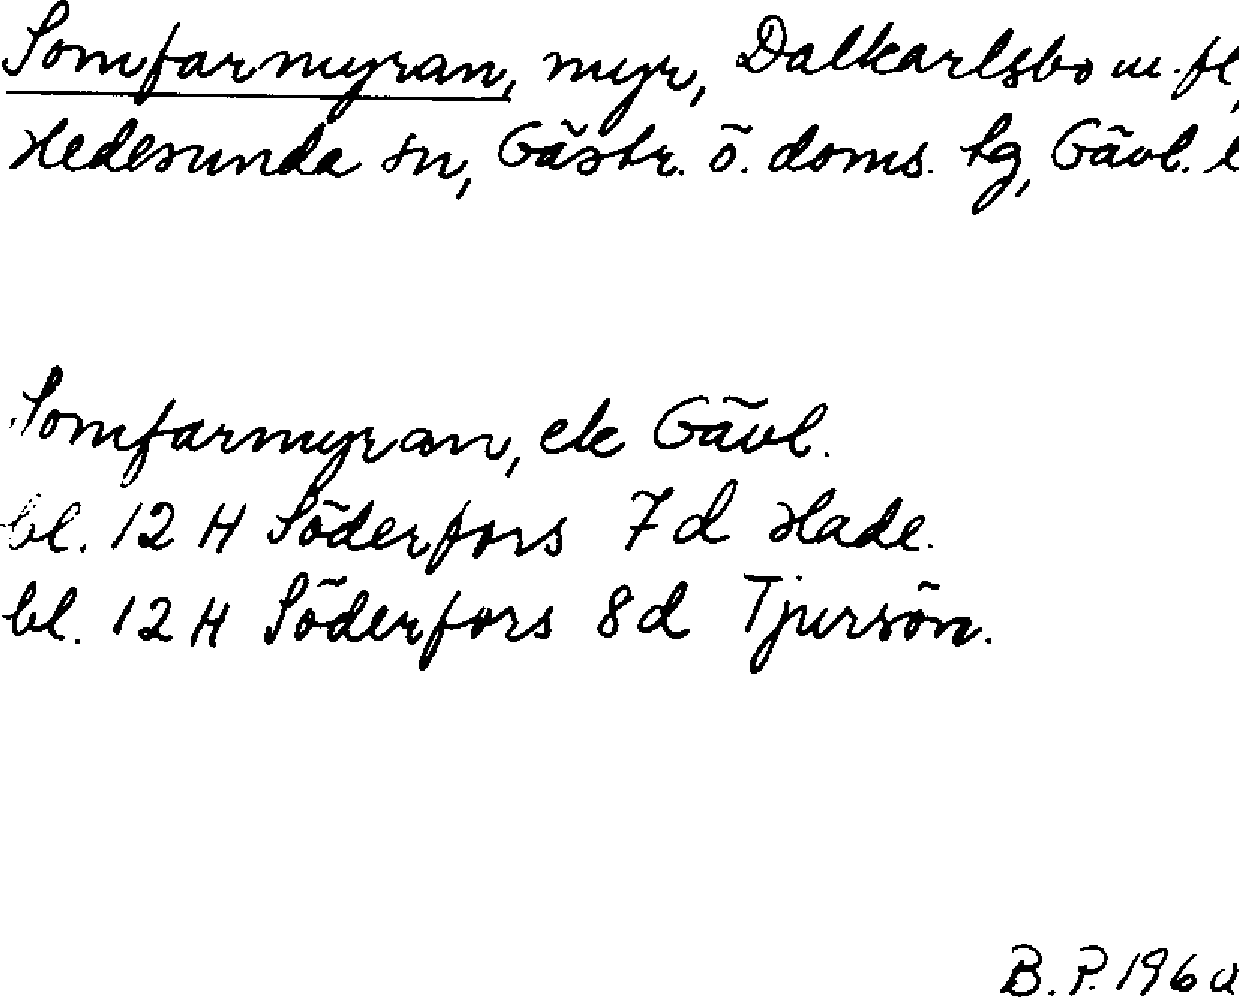 Somfarmyran, myr, Dalkarlsbo m.fl,
Hedesunda sn, Gästr. ö. doms. tg, Gävl. l
Somfarmyran, ek Gävl.
bl. 12 H Söderfors 7 d Hade.
bl. 12 H Söderfors 8 d Tjursön.
B. P. 1960